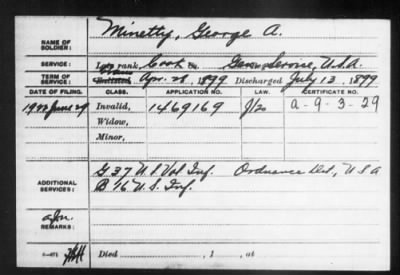 NAME OF SOLDIER: Minetty, George A.
SERVICE: Late rank, Cook Co. Gen. Service, U.S.A.
TERM OF SERVICE: Enlisted Apr. 28, 1899 Discharged July 13, 1899
DATE OF FILING. CLASS. APPLICATION NO. LAW. CERTIFICATE NO.
June 29 Invalid, 1469169 a-9-3-29
Widow,
Minor,
ADDITIONAL SERVICES: G 37 U.S. Vol Inf. Ordnance Det, U.S.A
B 16 U.S. Inf.
REMARKS:
Died , 1 , at